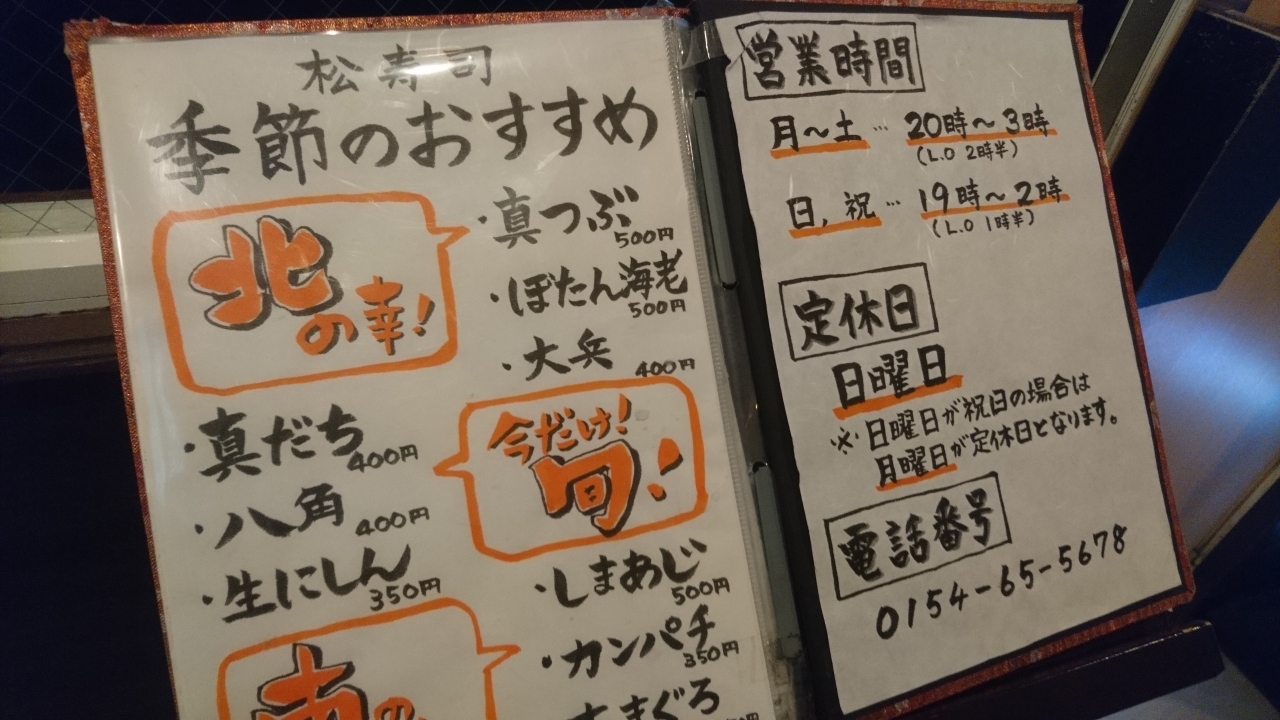 松寿司
季節のおすすめ
北の幸!
・真つぶ
500円
・ぼたん海老
500円
・大兵
400円
今だけ!
旬!
・真だち
400円
・八角
400円
・生にしん
350円
南の
・しまあじ
500円
・カンパチ
350円
まぐろ
営業時間
月〜土… 20時〜3時
(L.O 2時半)
日,祝… 19時〜2時
(L.O 1時半)
定休日
日曜日
※日曜日が祝日の場合は
月曜日が定休日となります。
電話番号
0154-65-5678